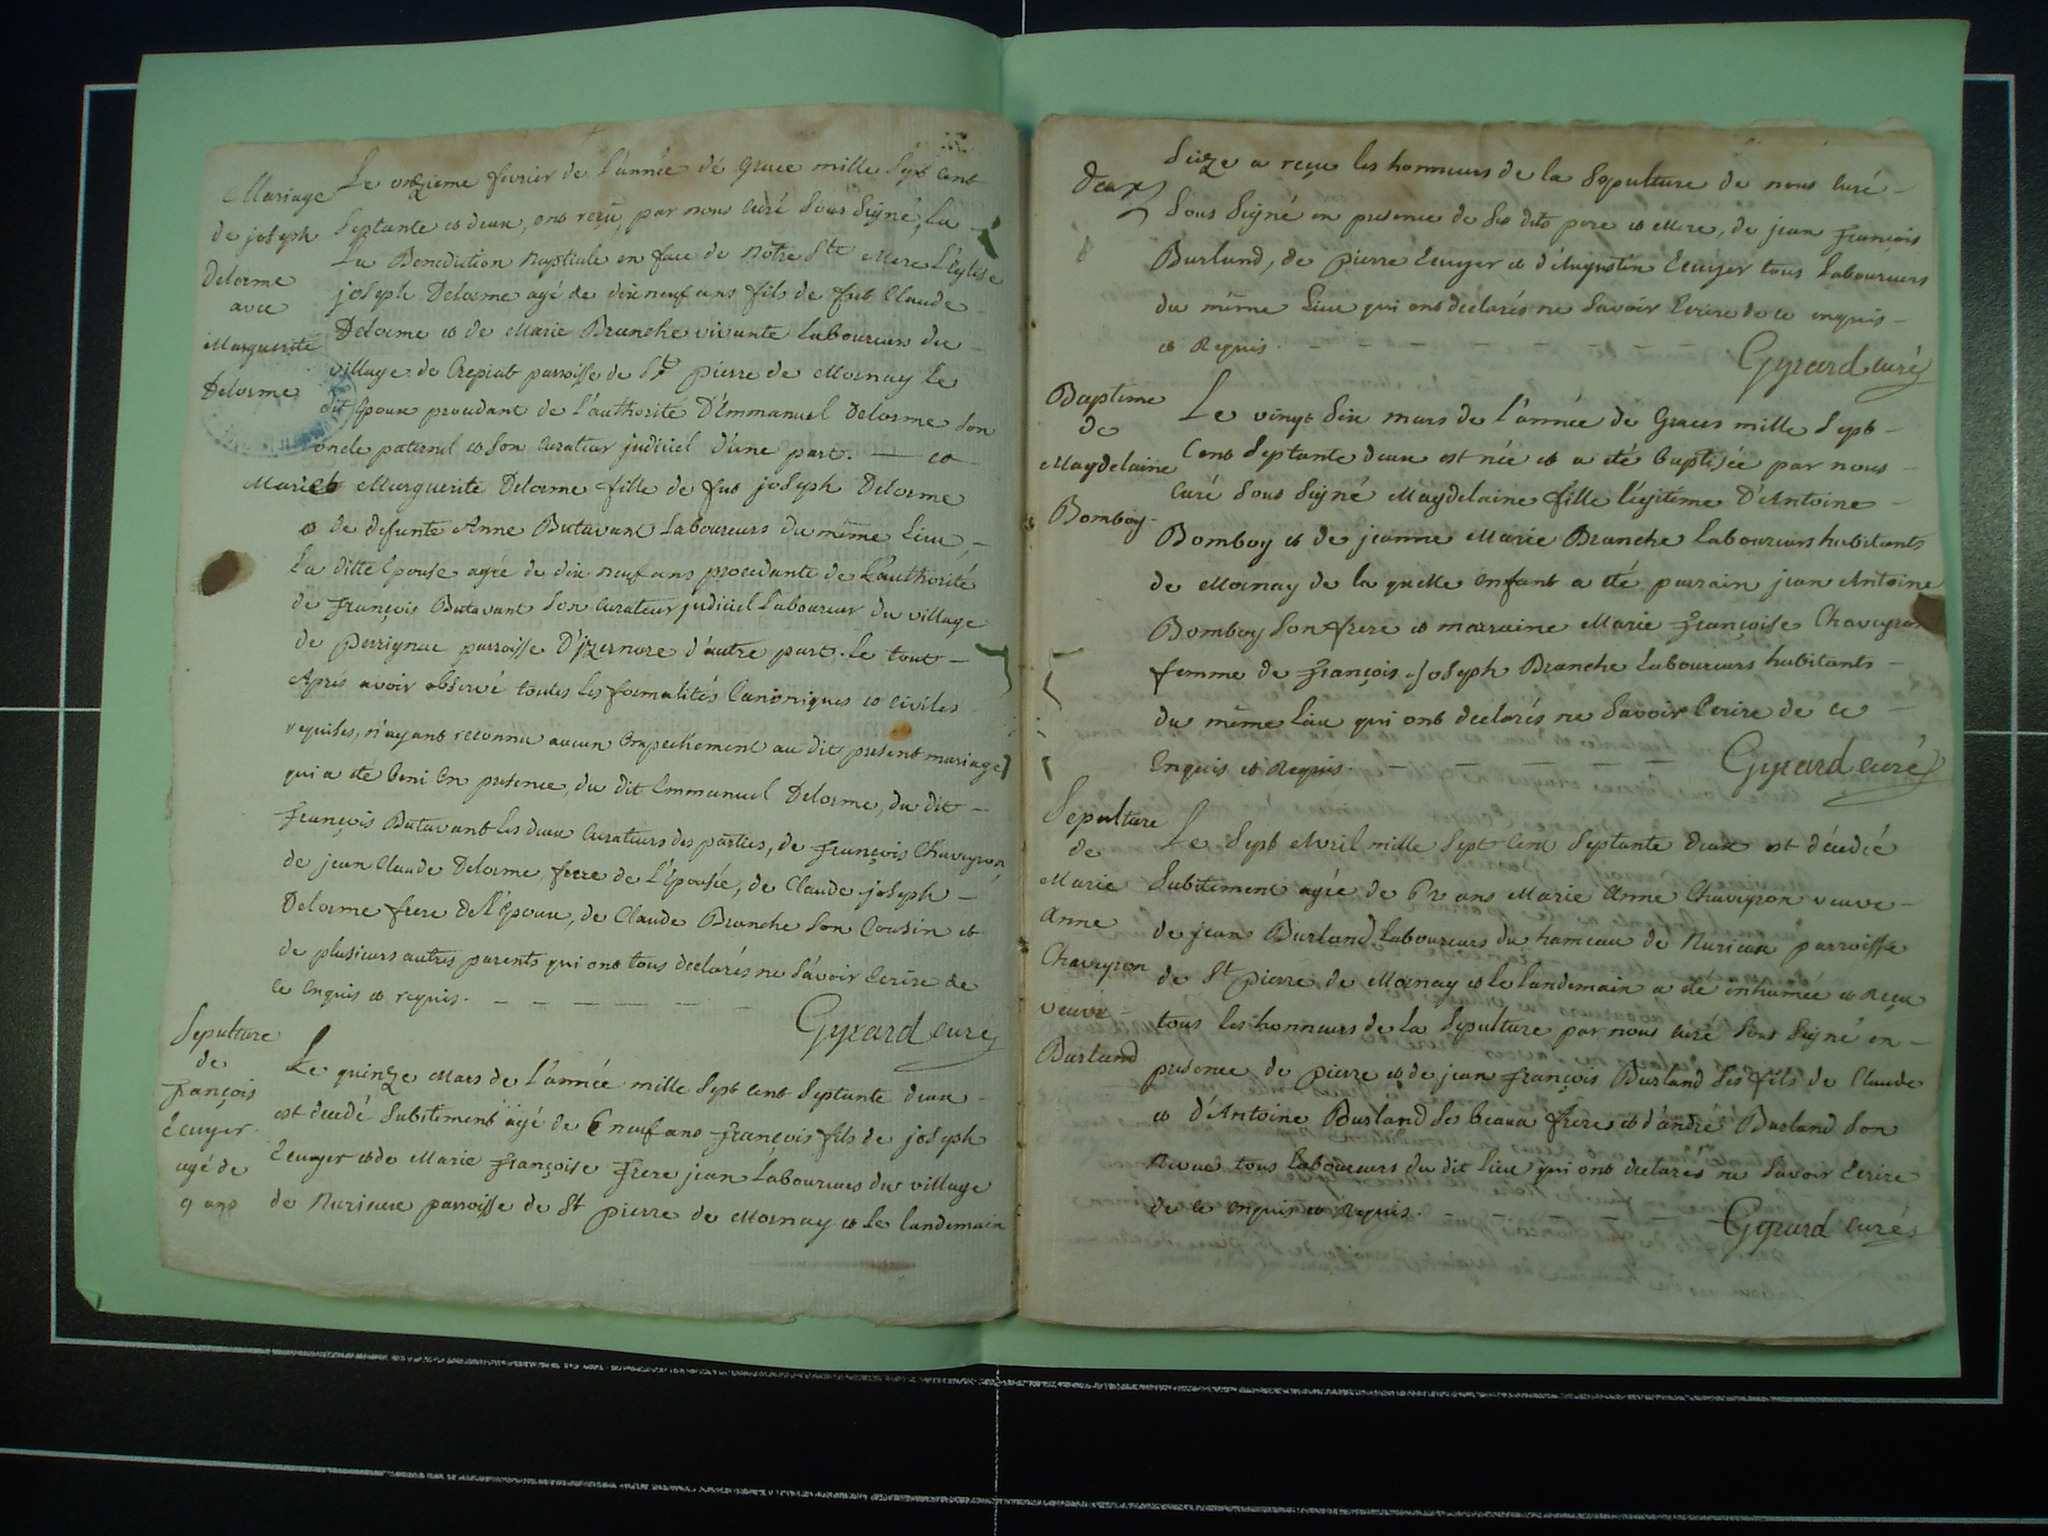 Mariage
de joseph
Delorme
avec
Marguerite
Delorme
Le onzieme fevrier de l'année de grace mille Sept cent
Septante et deux, ont reçu, par nous curé Sous Signé, La
La Benediction Nuptiale en face de Nôtre Ste Mere L'Eglise
joseph Delorme agé de dix neuf ans fils de fut Claude
Delorme et de Marie Branche vivante Laboureurs du
village de Crepiat parroisse de St pierre de Mornay Le
dit Epoux procedant de l'authorité D'Emmanuel Delorme Son
oncle paternel et Son Curateur judiciel d'une part. — et
Marie Marguerite Delorme fille de fut joseph Delorme
et de defunte Anne Butavant Laboureurs du même Lieu,
La ditte Epouse agée de dix neuf ans procedante de L'authorité
de françois Butavant Son Curateur judiciel Laboureur du village
de perrignac parroisse D'jzernore d'autre part. Le tout
Apres avoir observé toutes les formalités Canoniques et Civiles
requises, n'ayant reconnu aucun Empechement au dit present mariage
qui a été beni En presence, du dit Emmanuel Delorme, du dit
François Butavant les deux Curateurs des parties, de François Chaveyron,
de jean Claude Delorme, frere de l'Epousée, de Claude joseph
Delorme frere de L'Epoux, de Claude Branche Son Cousin et
de plusieurs autres parents qui ont tous declarés ne Sávoir Ecrire de
ce Enquis et requis.
Gyrard curé
Sepulture
de
françois
Ecuyer
agé de
9 ans
Le quinze Mars de L'année mille Sept cent Septante deux
est decedé Subitement agé de neuf ans françois fils de joseph
Ecuyer et de Marie françoise Frere jean Laboureurs du village
de Nurieux parroisse de St pierre de Mornay et Le landemain
deux
Seize a reçu les honneurs de la Sepulture de nous curé
Sous Signé en presence de Ses dits pere et Mere, de jean François
Burland, de pierre Ecuyer et d'Augustin Ecuyer tous Laboureurs
du même Lieu qui ont declarés ne Savoir Ecrire de ce enquis
et Requis.
Gyrard curé
Baptême
de
Magdelaine
Bomboy
Le vingt Six mars de l'année de Graces mille Sept
Cent Septante deux est née et a été baptisée par nous
curé Sous Signé Magdelaine fille légitime D'Antoine
Bomboy et de jeanne Marie Branche Laboureurs habitants
de Mornay de la quelle enfant a été parrain jean Antoine
Bomboy Son frere et marraine Marie Françoise Chaveyron
femme de François joseph Branche Laboureurs habitants
du même Lieu qui ont declarés ne Savoir Ecrire de ce
Enquis et Requis.
Gyrard curé
Sepulture
de
Marie
Anne
Chaveyron
veuve
Burland
Le Sept Avril mille Sept Cent Septante deux est décedée
Subitement agée de ans Marie Anne Chaveyron veuve
de jean Burland Laboureurs du hameau de Nurieux parroisse
de St pierre de Mornay et Le landemain a été inhumée et Reçu
tous les honneurs de la Sepulture par nous curé Sous Signé en
presence de pierre et de jean françois Burland Ses fils de Claude
et d'Antoine Burland Ses beaux freres et d'andré Burland Son
Neveu tous Laboureurs du dit Lieu qui ont declarés ne Savoir Ecrire
de ce enquis et Requis.
Gyrard curé